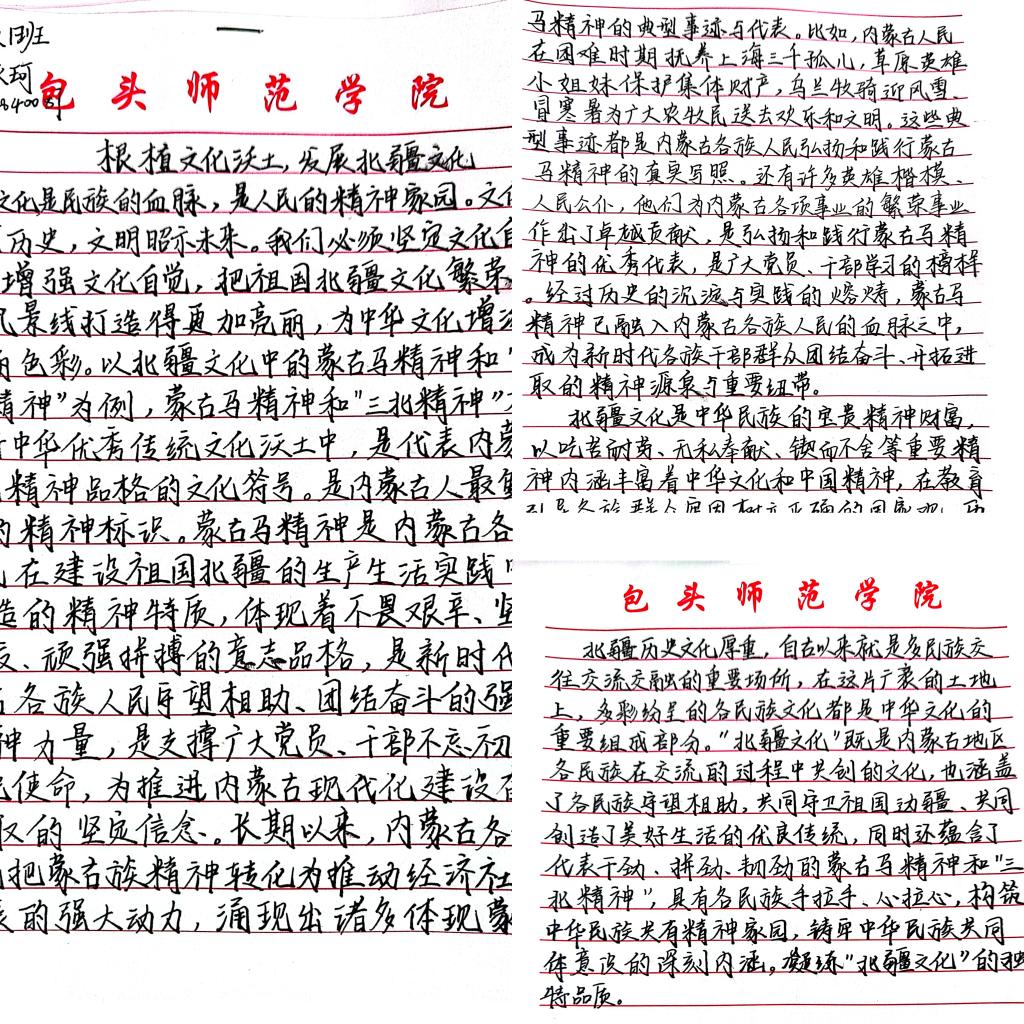 包头师范学院
根植文化沃土，发展北疆文化
文化是民族的血脉，是人民的精神家园。文化
历史，文明昭示未来。我们必须坚定文化自
增强文化自觉，把祖国北疆文化繁荣
风景线打造得更加亮丽，为中华文化增添
色彩。以北疆文化中的蒙古马精神和"
精神"为例，蒙古马精神和"三北精神"
中华优秀传统文化沃土中，是代表内蒙
精神品格的文化符号。是内蒙古人最
的精神标识。蒙古马精神是内蒙古各
在建设祖国北疆的生产生活实践
造的精神特质，体现着不畏艰辛、坚
、顽强拼搏的意志品格，是新时代
各族人民守望相助、团结奋斗的强
神力量，是支撑广大党员、干部不忘初
使命，为推进内蒙古现代化建设
取的坚定信念。长期以来，内蒙古各
把蒙古族精神转化为推动经济社
展的强大动力，涌现出诸多体现蒙
马精神的典型事迹与代表。比如，内蒙古人民
在困难时期抚养上海三千孤儿，草原英雄
小姐妹保护集体财产，乌兰牧骑迎风雪、
冒寒暑为广大农牧民送去欢乐和文明。这些典
型事迹都是内蒙古各族人民弘扬和践行蒙古
马精神的真实写照。还有许多英雄楷模、
人民公仆，他们为内蒙古各项事业的繁荣事业
作出了卓越贡献，是弘扬和践行蒙古马精
神的优秀代表，是广大党员、干部学习的榜样
。经过历史的沉淀与实践的熔铸，蒙古马
精神已融入内蒙古各族人民的血脉之中，
成为新时代各族干部群众团结奋斗、开拓进
取的精神源泉与重要纽带。
北疆文化是中华民族的宝贵精神财富，
以吃苦耐劳、无私奉献、锲而不舍等重要精
神内涵丰富着中华文化和中国精神，在教育
包头师范学院
北疆历史文化厚重，自古以来就是多民族交
往交流交融的重要场所，在这片广袤的土地
上，多彩纷呈的各民族文化都是中华文化的
重要组成部分。"北疆文化"既是内蒙古地区
各民族在交流的过程中共创的文化，也涵盖
了各民族守望相助，共同守卫祖国边疆、共同
创造了美好生活的优良传统，同时还蕴含了
代表干劲、拼劲、韧劲的蒙古马精神和"三
北精神"，具有各民族手拉手、心拉心，构筑
中华民族共有精神家园，铸牢中华民族共同
体意识的深刻内涵。凝练"北疆文化"的独
特品质。